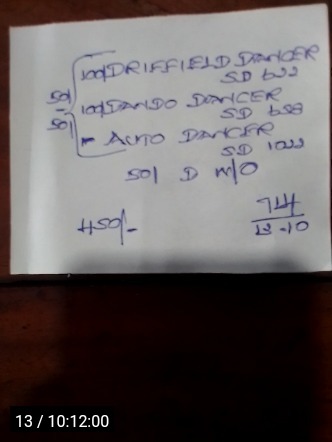 100/ DRIFFIELD DANCER
SD 622
50/
50/
100/ DANDO DANCER
SD 658
- AUTO DANCER
SD 1022
50/ D M/O
450/-
744
12-10
13 / 10:12:00